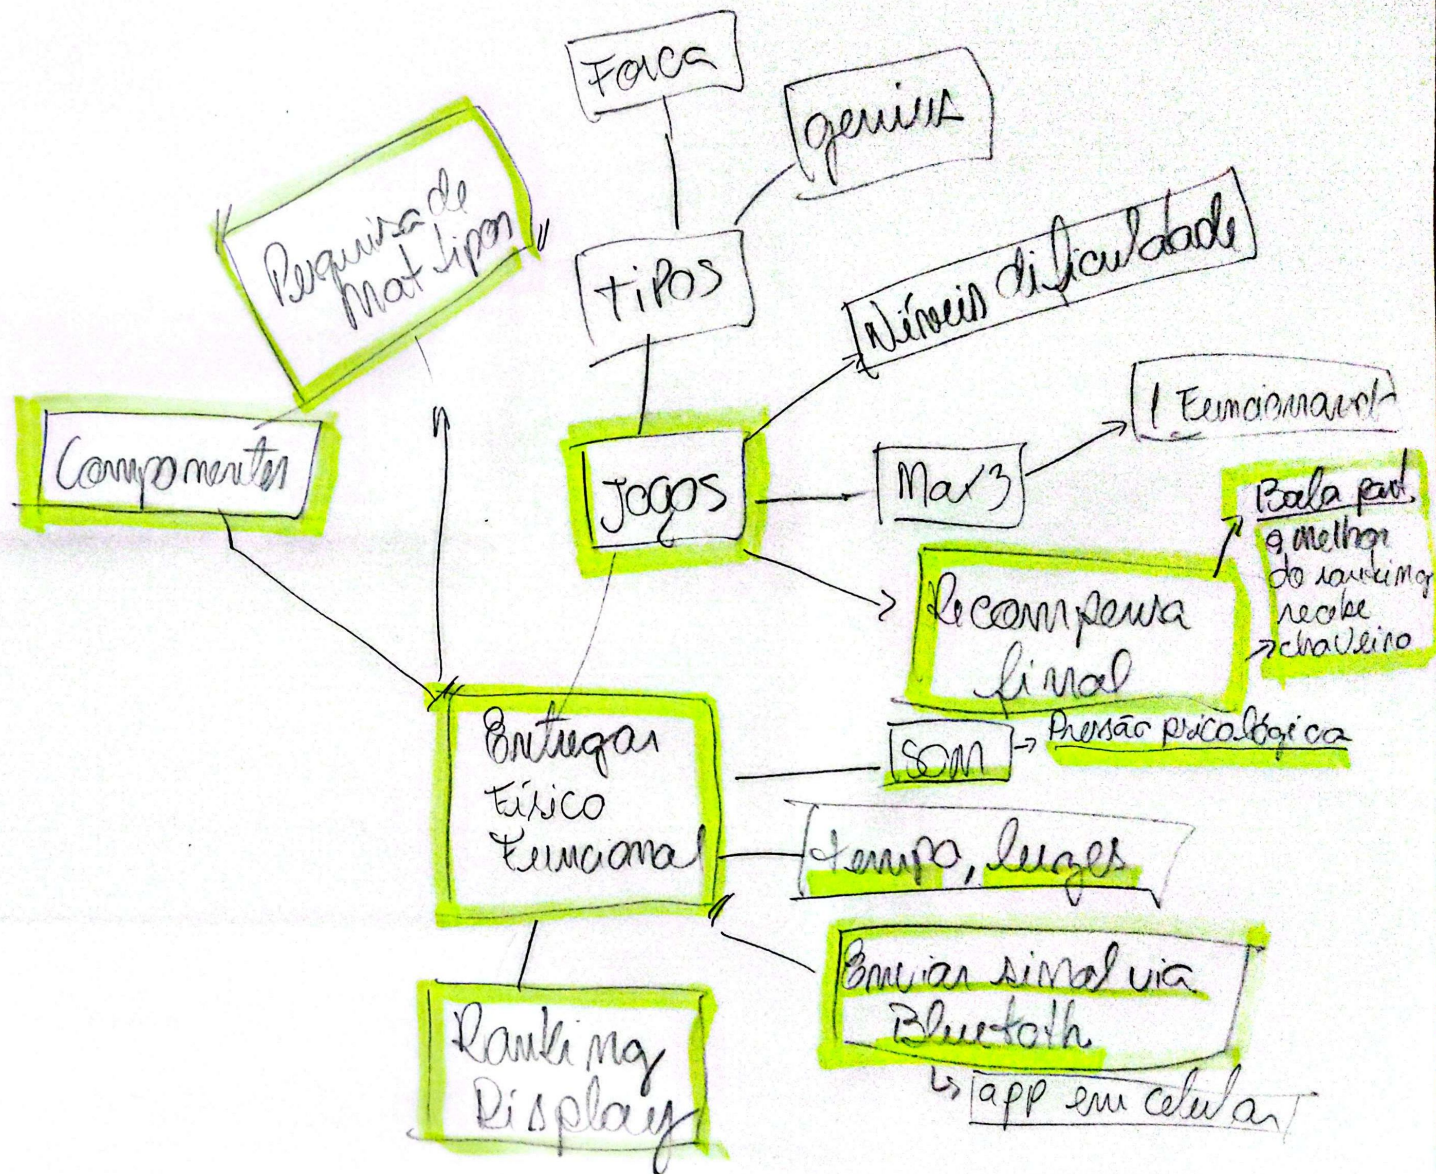 Forca
genius
Pesquisa de
Mat tipos
tiPos
Níveis dificuldade
Componentes
Jogos
Max 3
1 Funcionavel
Recompensa
final
Bala part.
o melhor
do ranking
recebe
chaveiro
Entregar
Físico
Funcional
Som
Pressão psicológica
tempo, luzes
Enviar sinal via
Bluetoth
app em celular
Ranking
Display